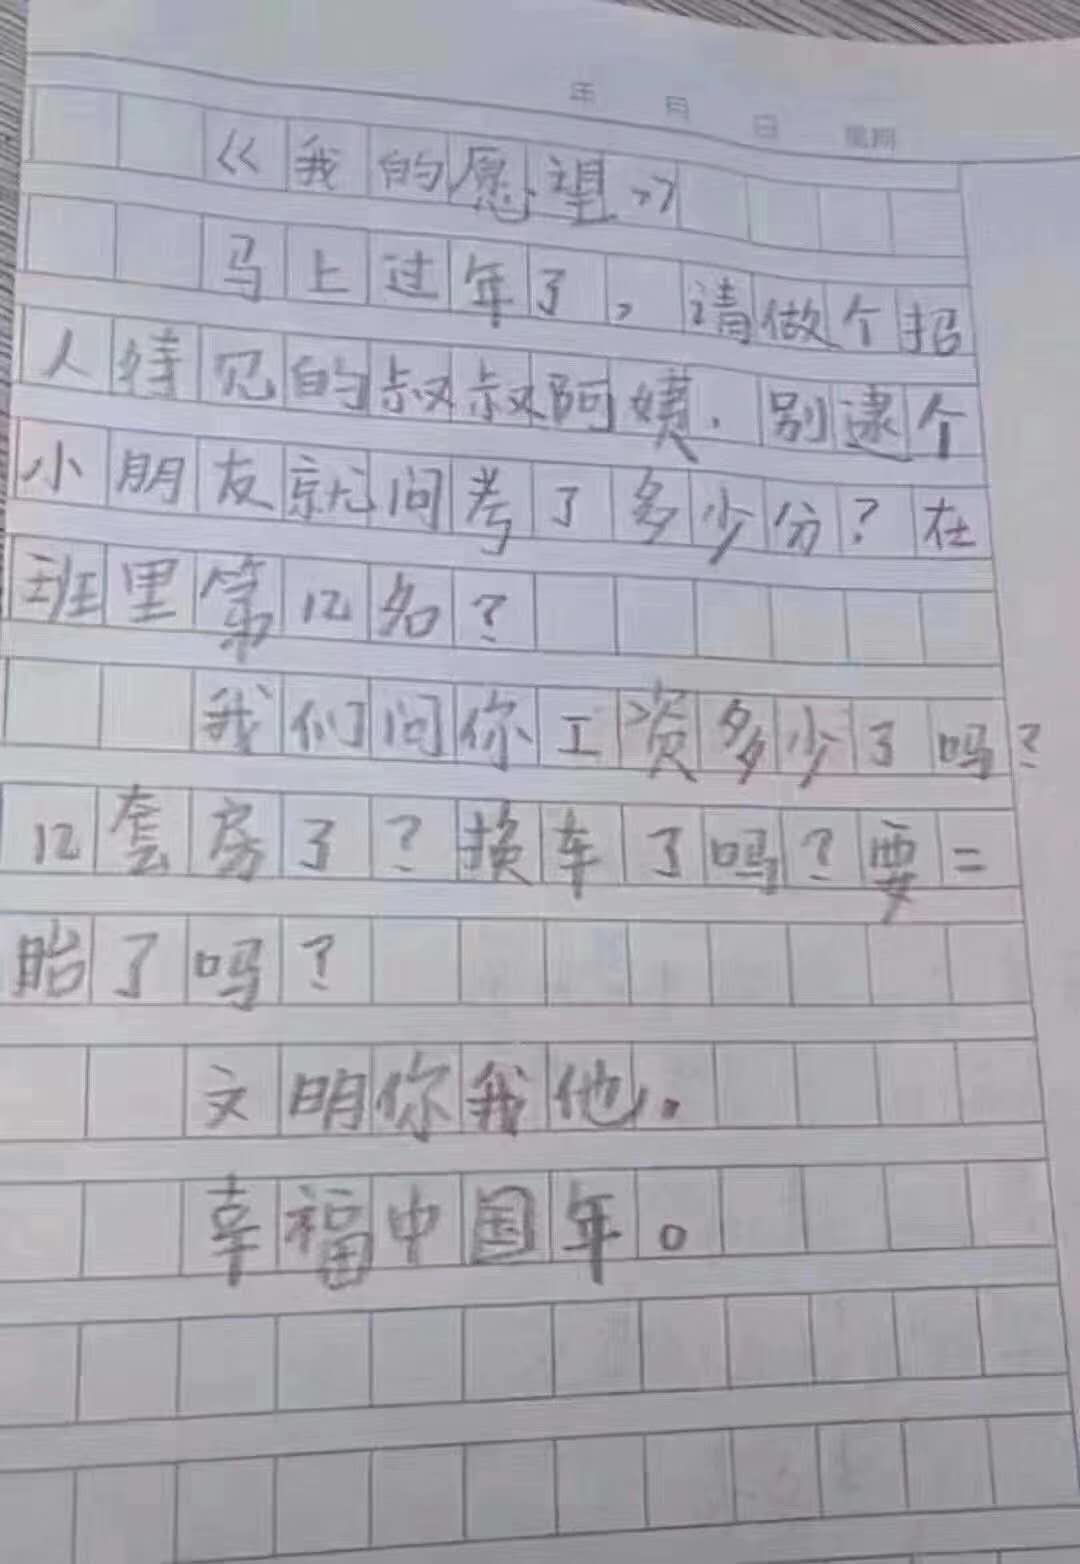 年 月 日 星期
《我的愿望》
马上过年了，请做个招
人待见的叔叔阿姨.别逮个
小朋友就问考了多少分?在
班里第几名?
我们问你工资多少了吗?
几套房了?换车了吗?要二
胎了吗?
文明你我他.
幸福中国年。